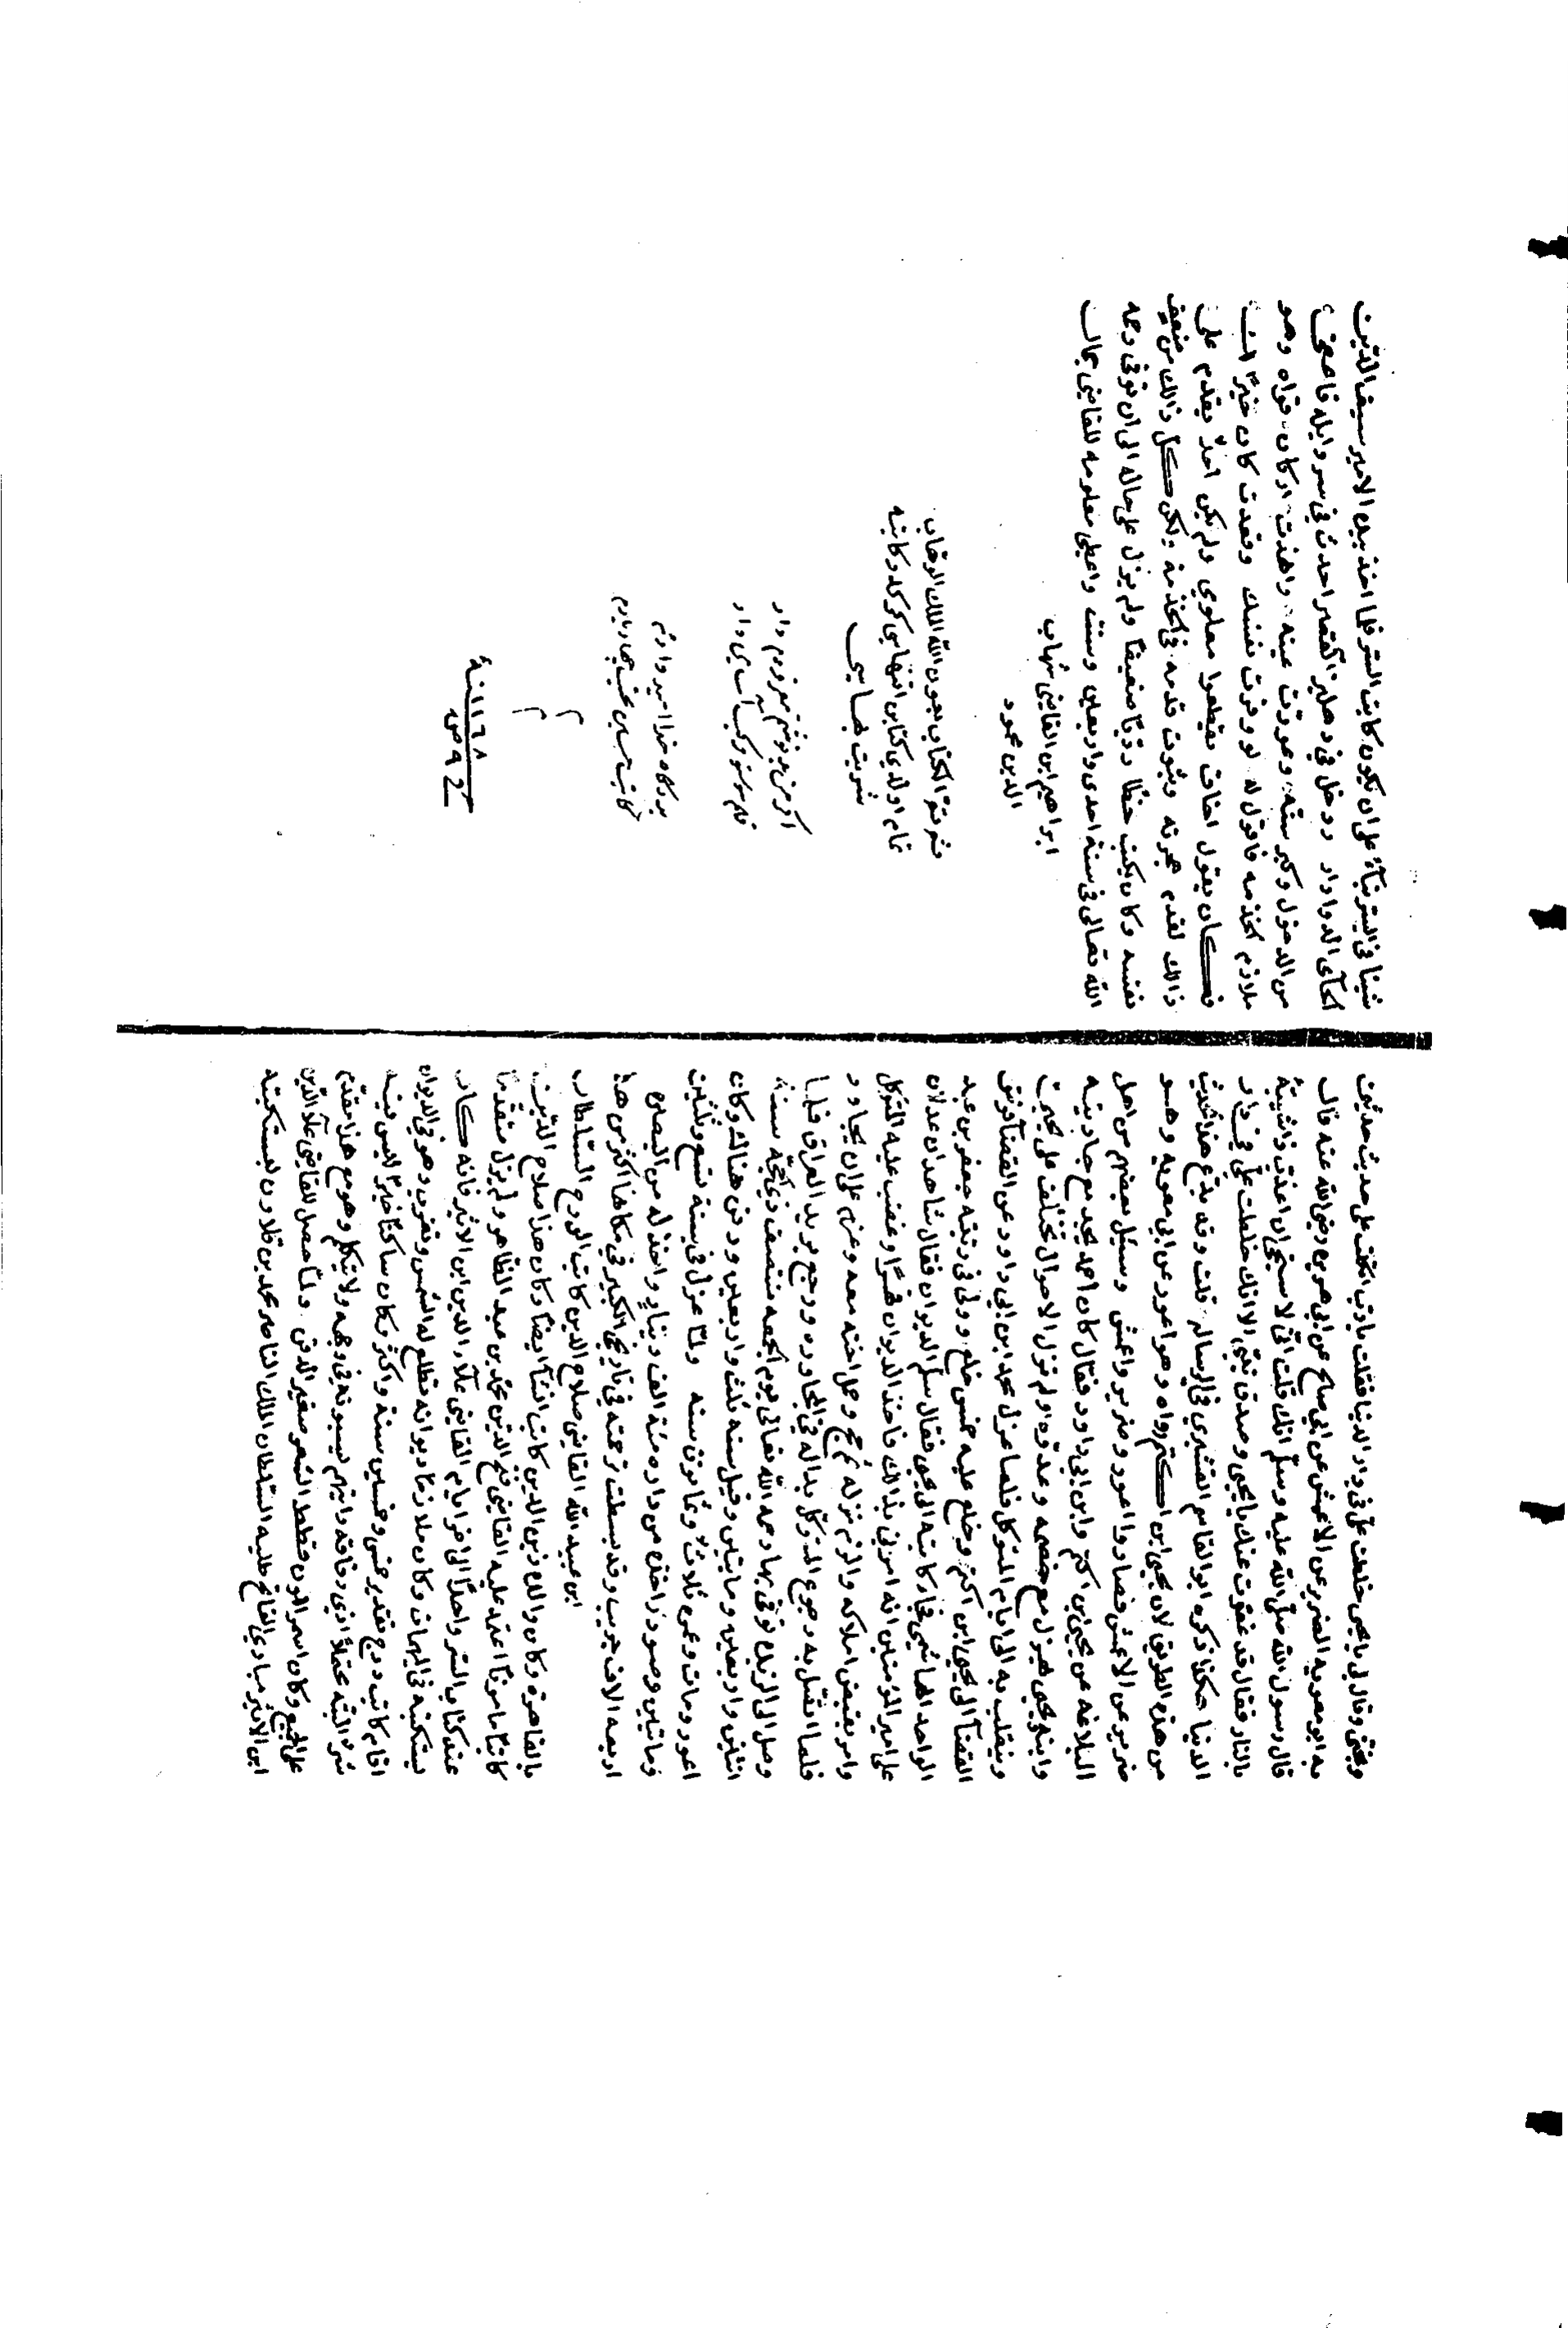 ويحيى وقال لي يا يحيى خلطت علي في دار الدنيا فقلت يا رب اتكلت على حديث حدثنيه
به ابو معويه الضرير عن الاعمش عن ابي صالح عن ابي هريره رضي الله عنه قال
قال رسول الله صلى الله عليه وسلم انك قلت اني لا ستحيي ان اعذب ذا شيبة
بالنار فقال قد عفوت عنك يا يحيى وصدق نبيي الا انك خلطت علي في دار
الدنيا هكذا ذكره ابو القاسم القشيري في الرساله قلت وقد يقع هذا الحديث
من هذه الطريق لان يحيى ابن اكثم رواه وهو اعور عن ابي معويه وهو
ضرير عن الاعمش فصاروا اعور وضرير واعمش وسئل بعضهم من اهل
البلاغه عن يحيى ابن اكثم وابن ابي داود فقال كان احمد يجد مع جاريته
وابنته ويحيى يهزل مع خصمه وعدوه ولم تزل الاحوال تختلف على يحيى
ويتقلب به الى ايام المتوكل فلما عزل محمد ابن ابي داود عن القضآ فوض
القضآ الى يحيى ابن اكثم وخلع عليه خمس خلع وولى في رتبته جعفر بن عبد
الواحد الهاشمي فجا كاتبه الى يحيى فقال سلم الديوان فقال شاهدان عدلان
على امير المؤمنين انه امرني بذالك فاخذ الديوان قهرًا وغضب عليه المتوكل
وامر بقبض املاكه والزم منزله ثم حج وحمل اخته معه وعزم على ان يجاور
فلما اتصل به رجوع المتوكل بداله في المجاوره ورجع يريد العراق فلما
وصل الى الربذه توفي بها رحمه الله تعالى يوم الجمعه منتصف ذي الحجه سنة
اثنتين واربعين ومايتين وقيل سنه ثلث واربعين ودفن هنالك وكان
اعور ومات وعمره ثلاث وثمانون سنه ولما عزل في سنة تسع وثلثين
ومائتين وصودر اخذ من داره مئة الف دينار واخذ له من البصره
اربعه الاف جريب وقد بسطت ترجمته في تاريخي الكبير في مكانها اكثر من هذا
ابن عبيد الله القاضي صلاح الدين كاتب الدرج السلطان
بالقاهره وكان والده زين الدين كاتب انشآ ايضًا وكان هذا صلاح الدين
كاتبًا مامونًا اعتمد عليه القاضي فتح الدين محمد بن عبد الظاهر ولم يزل متقدمًا
عند كتاب السر واحدًا الى اخر ايام القاضي علاء الدين ابن الاثير فانه كان
يستكتبه في المهمات وكان ملازمًا ديوانه تطلع له الشمس وتغرب وهو في الديوان
اقام كاتب درج تقدير خمس وخمسين سنة واكثر وكان ساكنًا خيرًا ليس فيه
شر البتة محتملاً اذي رفاقه رايتهم يسبونه في وجهه ولا يتكلم وهو مع هذا مقدم
على الجميع وكان اسمر اللون قطط الشعر صغير الذقن ولما حصل للقاضي علآ الدين
ابن الاثير مبادي الفالج طلبه السلطان الملك الناصر محمد بن قلاون ليستكتبه
شيئًا في السر بناءً على ان يكون كاتب السر فلما اخذ بيده الامير سيف الدين
الجآي الدوادار ودخل في دهليز القصر احدث في سراويله فاعفي
من الدخول وكبر سنه وعورت عينه واهذت اركان قواه وهو
ملازم الخدمه فاقول له لو وفرت نفسك وقعدت كان خيرًا لك
فكان يقول اخاف يقطعوا معلومي ولم يكن احد يقدم على
ذالك لقدم هجرته وثبوت قدمه في الخدمة ولكن كل ذالك من ضعف
نفسه وكان يكتب خطًا رديًا ضعيفًا ولم يزل على حاله الى ان توفي رحمه
الله تعالى في سنة احدى واربعين وست واعطي معلومه للقاضي جمال
ابراهيم ابن القاضي شهاب
الدين محمود
تم الكتاب بعون الله الملك الوهاب
تمام اولدي كتاب
خدا
١١٦٨ سنة